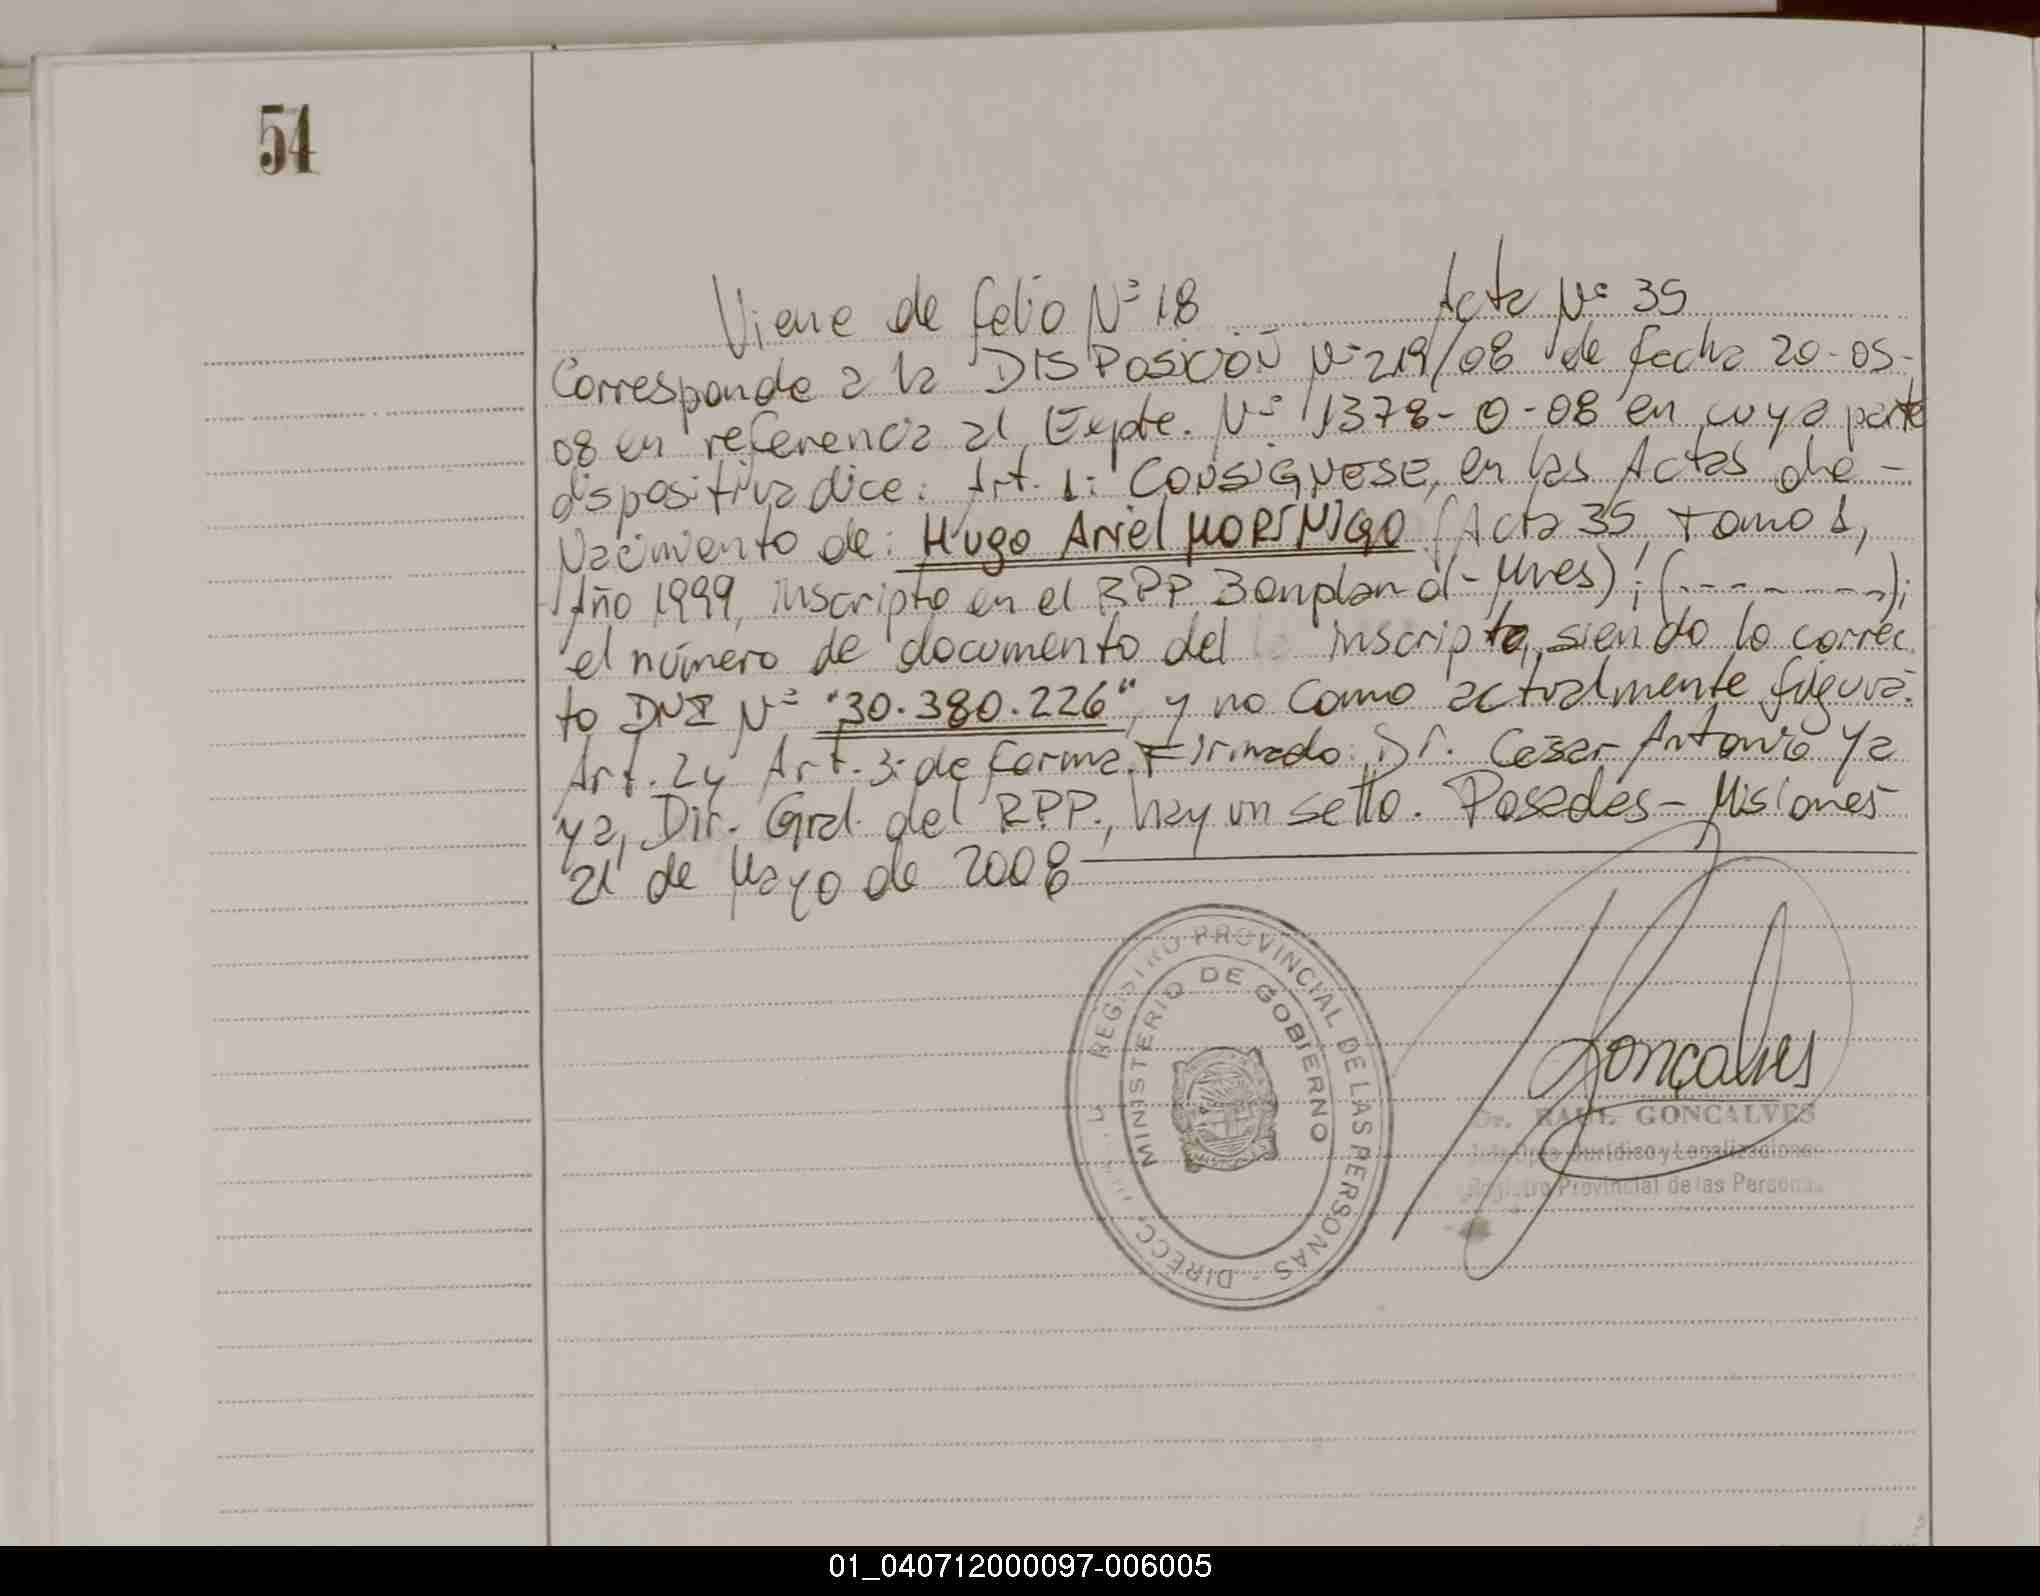 54
Viene de folio Nº 18 Acta Nº 35
Corresponde a la DISPOSICIÓN Nº 219/08 de fecha 20-05-
08 en referencia al Expte. Nº 1378-O-08 en cuya parte
dispositiva dice: Art. 1: CONSIGNESE, en las Actas de -
Nacimiento de: Hugo Ariel MORINIGO (Acta 35, tomo 1,
Año 1999, inscripto en el RPP Bonpland - Mnes); (---------);
el número de documento del inscripto, siendo lo correc
to DNI Nº "30.380.226", y no como actualmente figura.
Art. 2 y Art. 3: de forma. Firmado: Dr. Cesar Antonio Ya
ya, Dir. Gral. del RPP., hay un sello. Posadas - Misiones
21 de Mayo de 2008
REGISTRO PROVINCIAL DE LAS PERSONAS - DIRECC.
MINISTERIO DE GOBIERNO
Gonçalves
Dr. RAUL GONCALVES
Jefe Dpto. Jurídico y Legalizaciones
Registro Provincial de las Personas
01_040712000097-006005